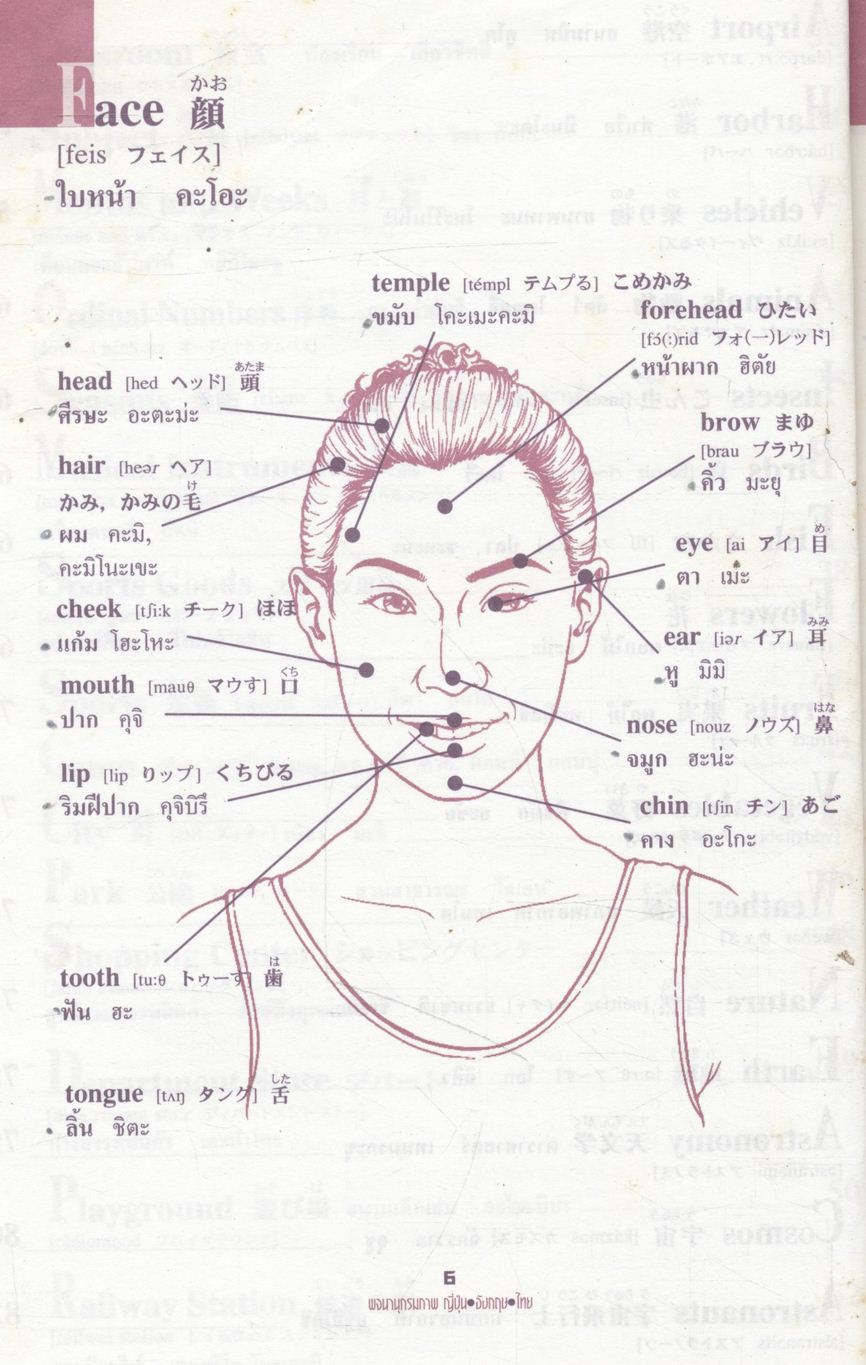 かお
Face 顔
[feis フェイス]
ใบหน้า คะโอะ
temple [témpl テムプる] こめかみ
ขมับ โคะเมะคะมิ
forehead ひたい
[fɔ́(:)rid フォ(ー)レッド]
หน้าผาก ฮิตัย
あたま
head [hed ヘッド] 頭
ศีรษะ อะตะมะ
brow まゆ
[brau ブラウ]
คิ้ว มะยุ
hair [heər ヘア]
け
かみ, かみの毛
ผม คะมิ,
คะมิโนะเขะ
め
eye [ai アイ] 目
ตา เมะ
cheek [tʃi:k チーク] ほほ
แก้ม โฮะโหะ
みみ
ear [iər イア] 耳
หู มิมิ
くち
mouth [mauθ マウす] 口
ปาก คุจิ
はな
nose [nouz ノウズ] 鼻
จมูก ฮะน่ะ
lip [lip りップ] くちびる
ริมฝีปาก คุจิบิรึ
chin [tʃin チン] あご
คาง อะโกะ
は
tooth [tu:θ トゥーす] 歯
ฟัน ฮะ
した
tongue [tʌŋ タング] 舌
ลิ้น ชิตะ
6
พจนานุกรมภาพ ญี่ปุ่น●อังกฤษ●ไทย